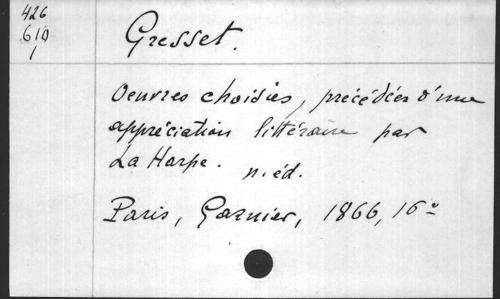 426
610
1
Gresset.
Oeuvres choisies, précédées d'une
appréciation littéraire par
La Harpe. n. éd.
Paris, Garnier, 1866, 16º